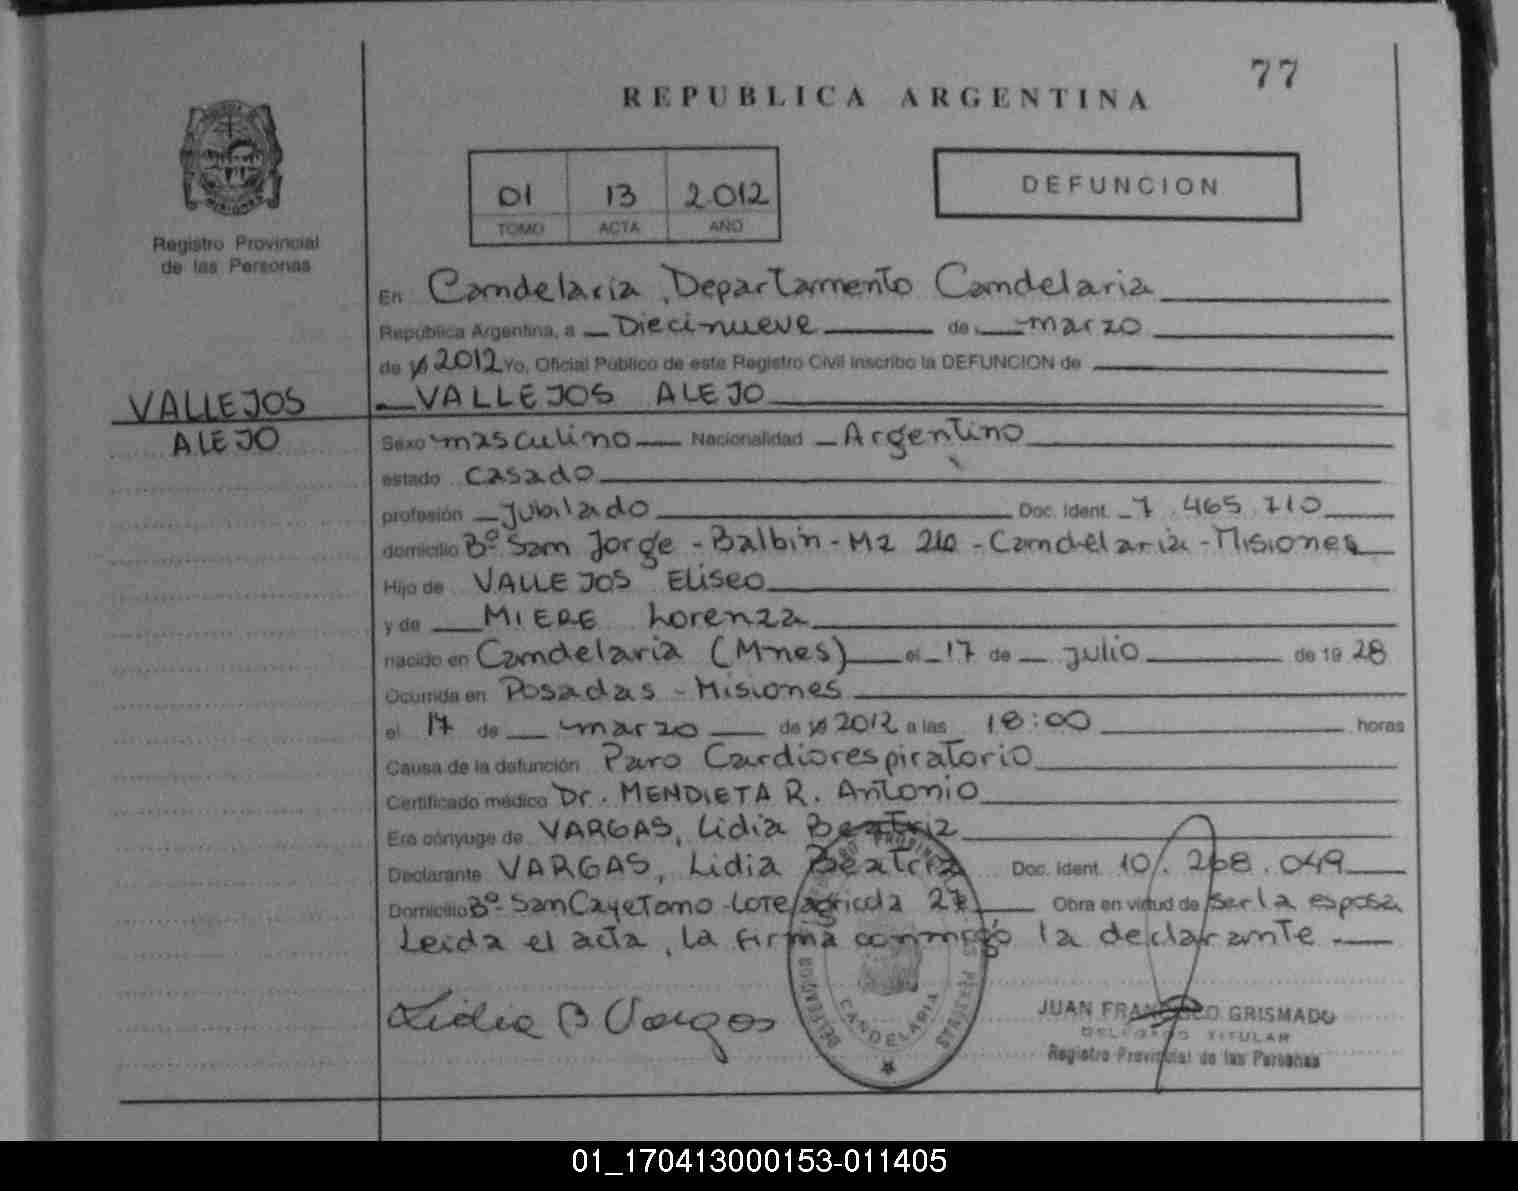 77
REPUBLICA ARGENTINA
01 13 2012
TOMO ACTA AÑO
DEFUNCION
Registro Provincial
de las Personas
En Candelaria, Departamento Candelaria
República Argentina, a Diecinueve de marzo
de 19 2012 Yo, Oficial Público de este Registro Civil inscribo la DEFUNCION de
VALLEJOS ALEJO
VALLEJOS
ALEJO
Sexo masculino Nacionalidad Argentino
estado casado
profesión Jubilado Doc. Ident. 7.465.710
domicilio Bº San Jorge - Balbin - Mz - Candelaria - Misiones
Hijo de VALLEJOS Eliseo
y de MIERE Lorenza
nacido en Candelaria (Mnes) el 17 de julio de 19 28
Ocurrida en Posadas - Misiones
el 17 de marzo de 19 2012 a las 18:00 horas
Causa de la defunción Paro Cardiorespiratorio
Certificado médico Dr. MENDIETA R. Antonio
Era cónyuge de VARGAS, Lidia Beatriz
Declarante VARGAS, Lidia Beatriz Doc. Ident. 10.268.049
Domicilio Bº San Cayetano - Lote agricola Obra en virtud de ser la esposa
Leida el acta, la firma conmigo la declarante
Lidia B Vargas
CANDELARIA
JUAN FRANCISCO GRISMADO
DELEGADO TITULAR
Registro Provincial de las Personas
01_170413000153-011405